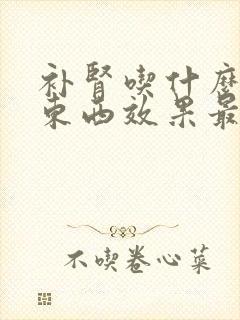 补腎喫什麽
東西效果最
不喫卷心菜